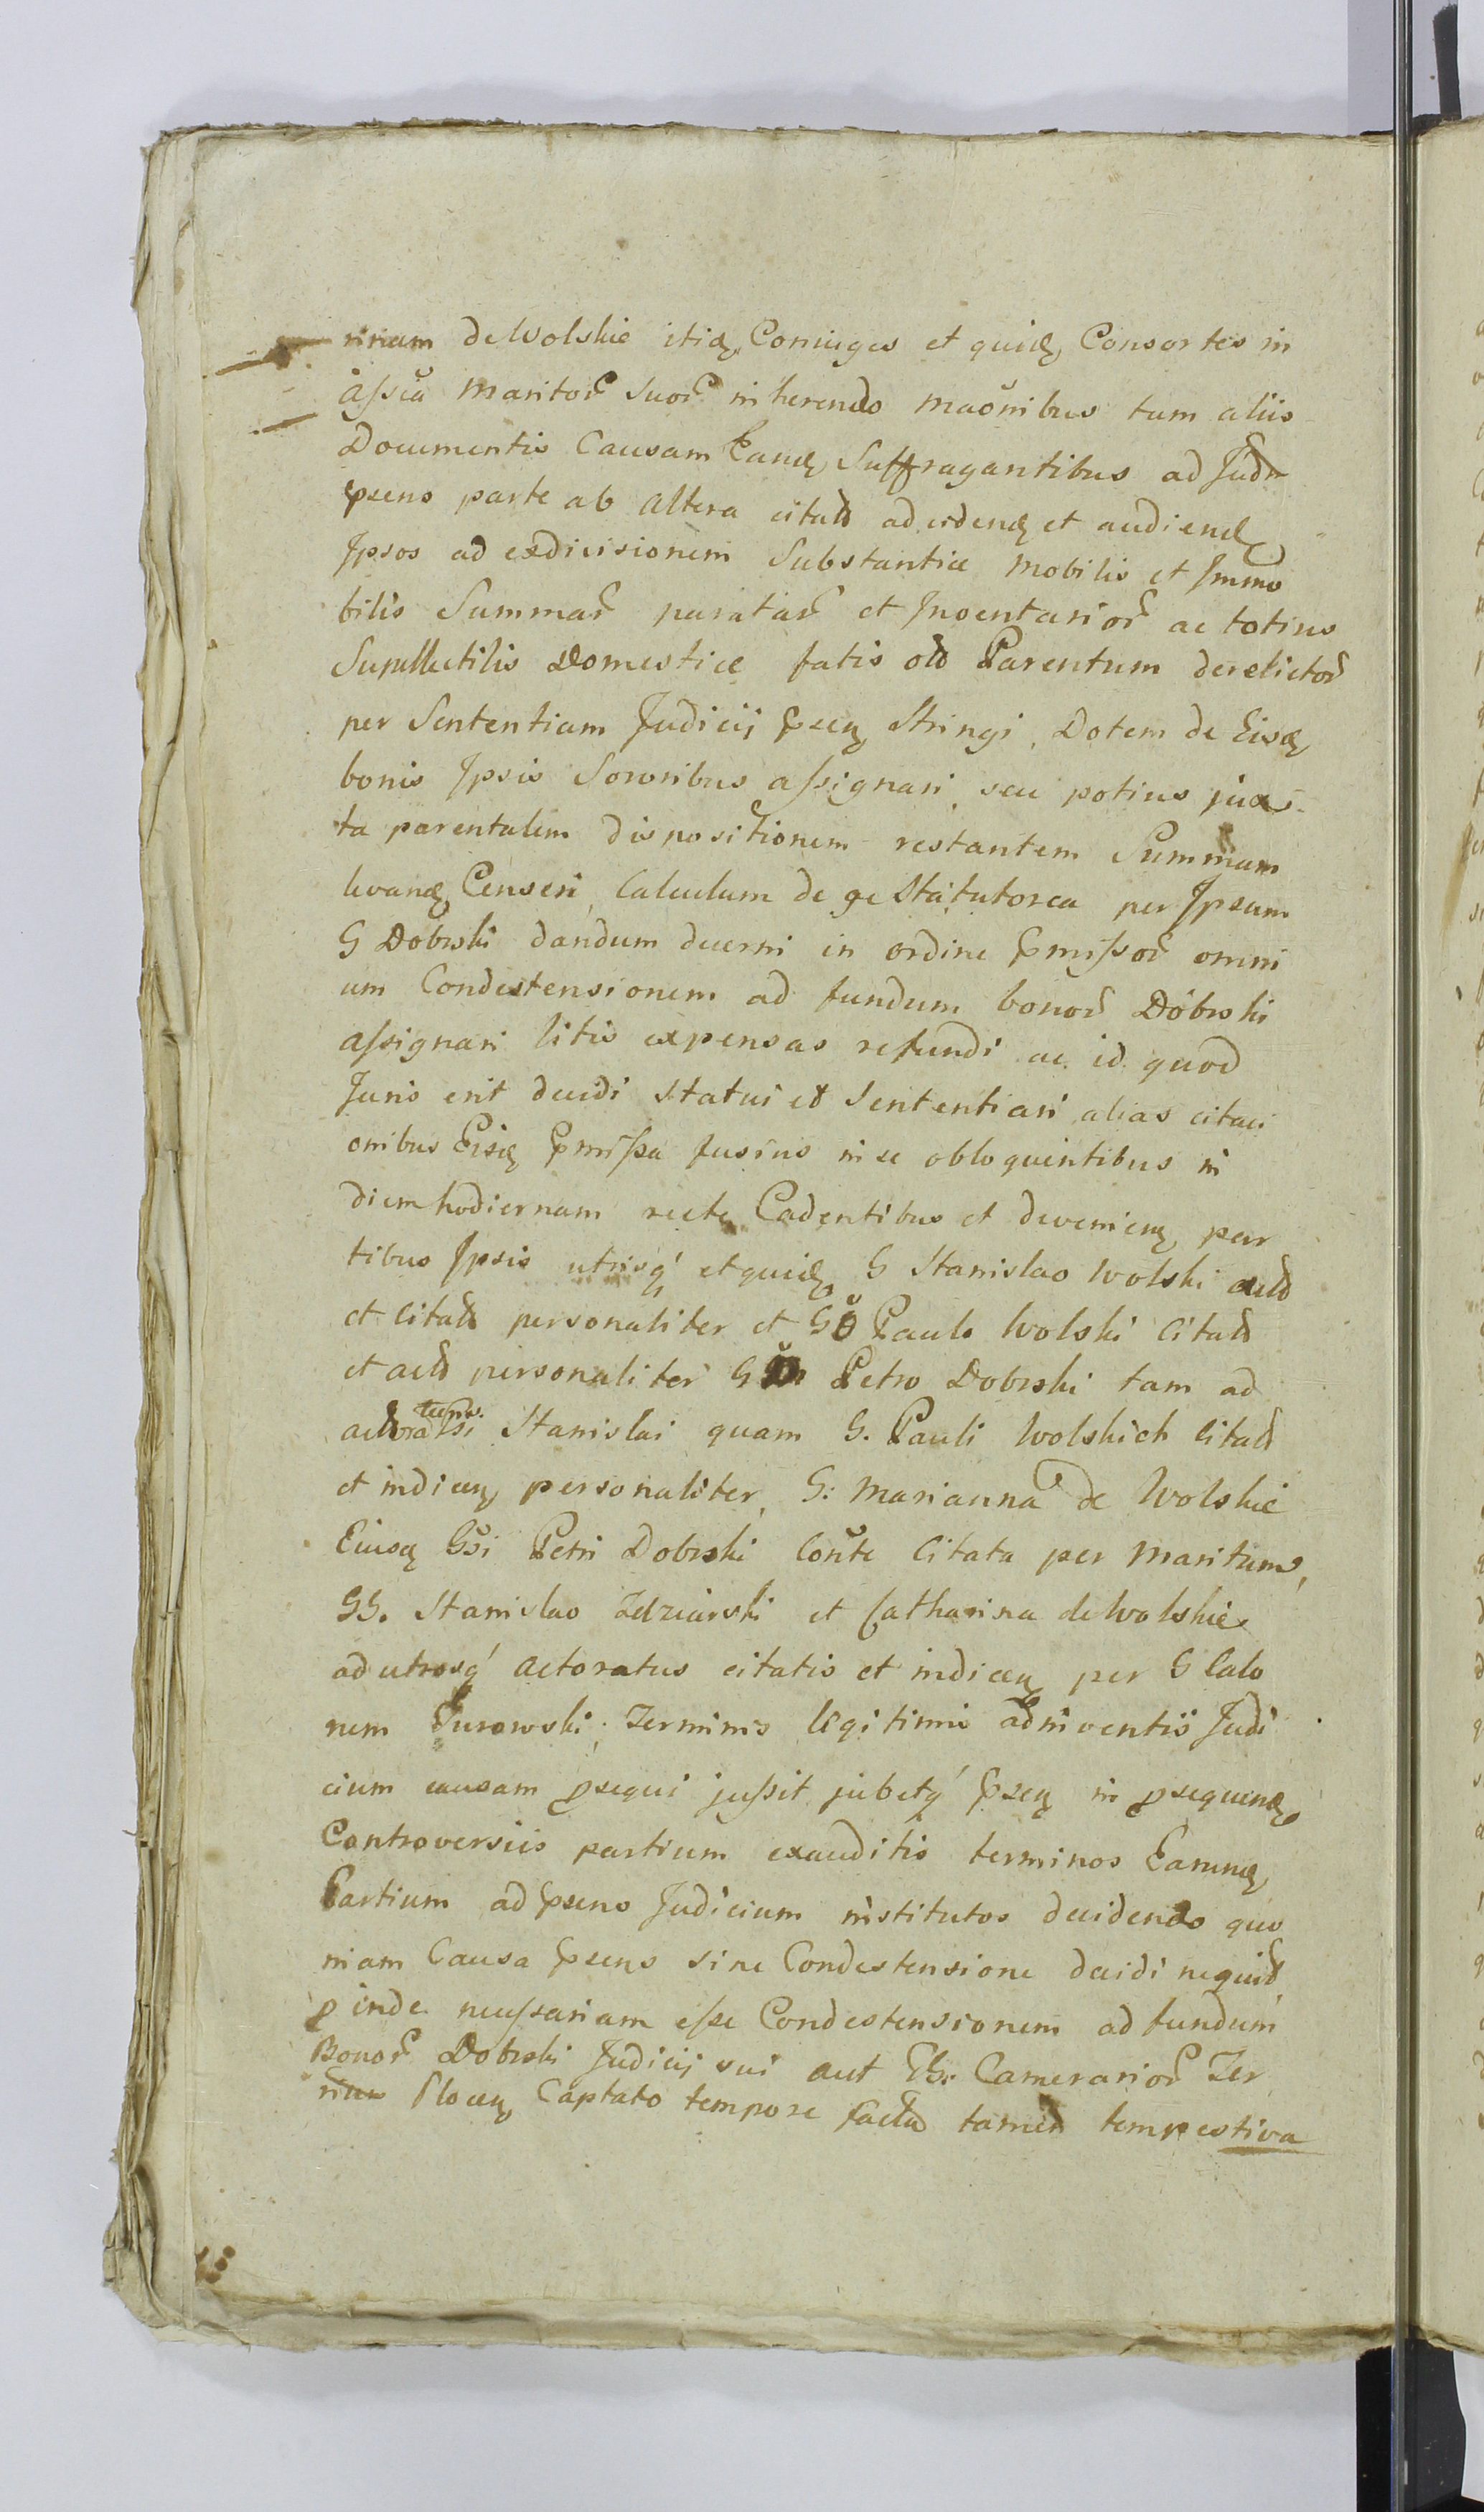 nnam de Wolskie itidꝫ Coniuges et quidꝫ Consortes in
aſsia maritor suor inherendo maōnibus tum aliis
Documentis Causam Eandꝫ Suffragantibus ad Judm
pñens parte ab altera citatt ad videndꝫ et audiendꝫ
Ipsos ad exdivisionem Substantiæ mobilis et Immo
bilis Summar paratar et Inventarior ac totius
Supellectilis Domesticæ fatis olt Parentum derelictor
per Sententiam Judicij pñenꝫ stringi, Dotem de Eisdꝫ
bonis Ipsis Sororibus aſsignari, seu potius jux-
ta parentalem dispositionem restantem Summam
levandꝫ Censeri, Calculum de ge statutorea per Ipsum
G Dobrski dandum decerni in ordine pmiſsor omni
um Condestensionem ad fundum bonor Dobrski
aſsignari litis expensas refundi ac id quod
Juris erit decidi statui et Sententiari alias citaci
onibus Eisdꝫ pmiſsa fusius in se obloquentibus in
diem hodiernam recte Cadentibus et devenienꝫ par
tibus Ipsis utrisq́ et quidꝫ G Stanislao Wolski actt
et citatt personaliter et Gō Paulo Wolski citatt
et actt personaliter G Petro Dobrski tam ad
actoratum Gsi Stanislai quam G. Pauli Wolskich citatt
et indicenꝫ personaliter, G: Marianna de Wolskie
Eiusdꝫ Gsi Petri Dobrski Conte Citata per maritum,
GG. Stanislao Zdziarski et Catharina de Wolskie
ad utrosq́ actoratus citatis et indicenꝫ per G Calo
nem Gurowski; Terminis legitime adinventis Judi
cium causam prsequi juſsit jubetq́ pñenꝫ in prsequendꝫ
Controversiis partium exauditis terminos Earundꝫ
Partium ad pñens Judicium institutos decidendo quo
niam Causa pñens sine Condestensione decidi nequit
proinde neceſsariam eſse Condestensionem ad fundum
Bonor Dobrski Judicij sui aut GG: Camerarior Ter
rium Plocenꝫ Captato tempore facta tamen tempestiva